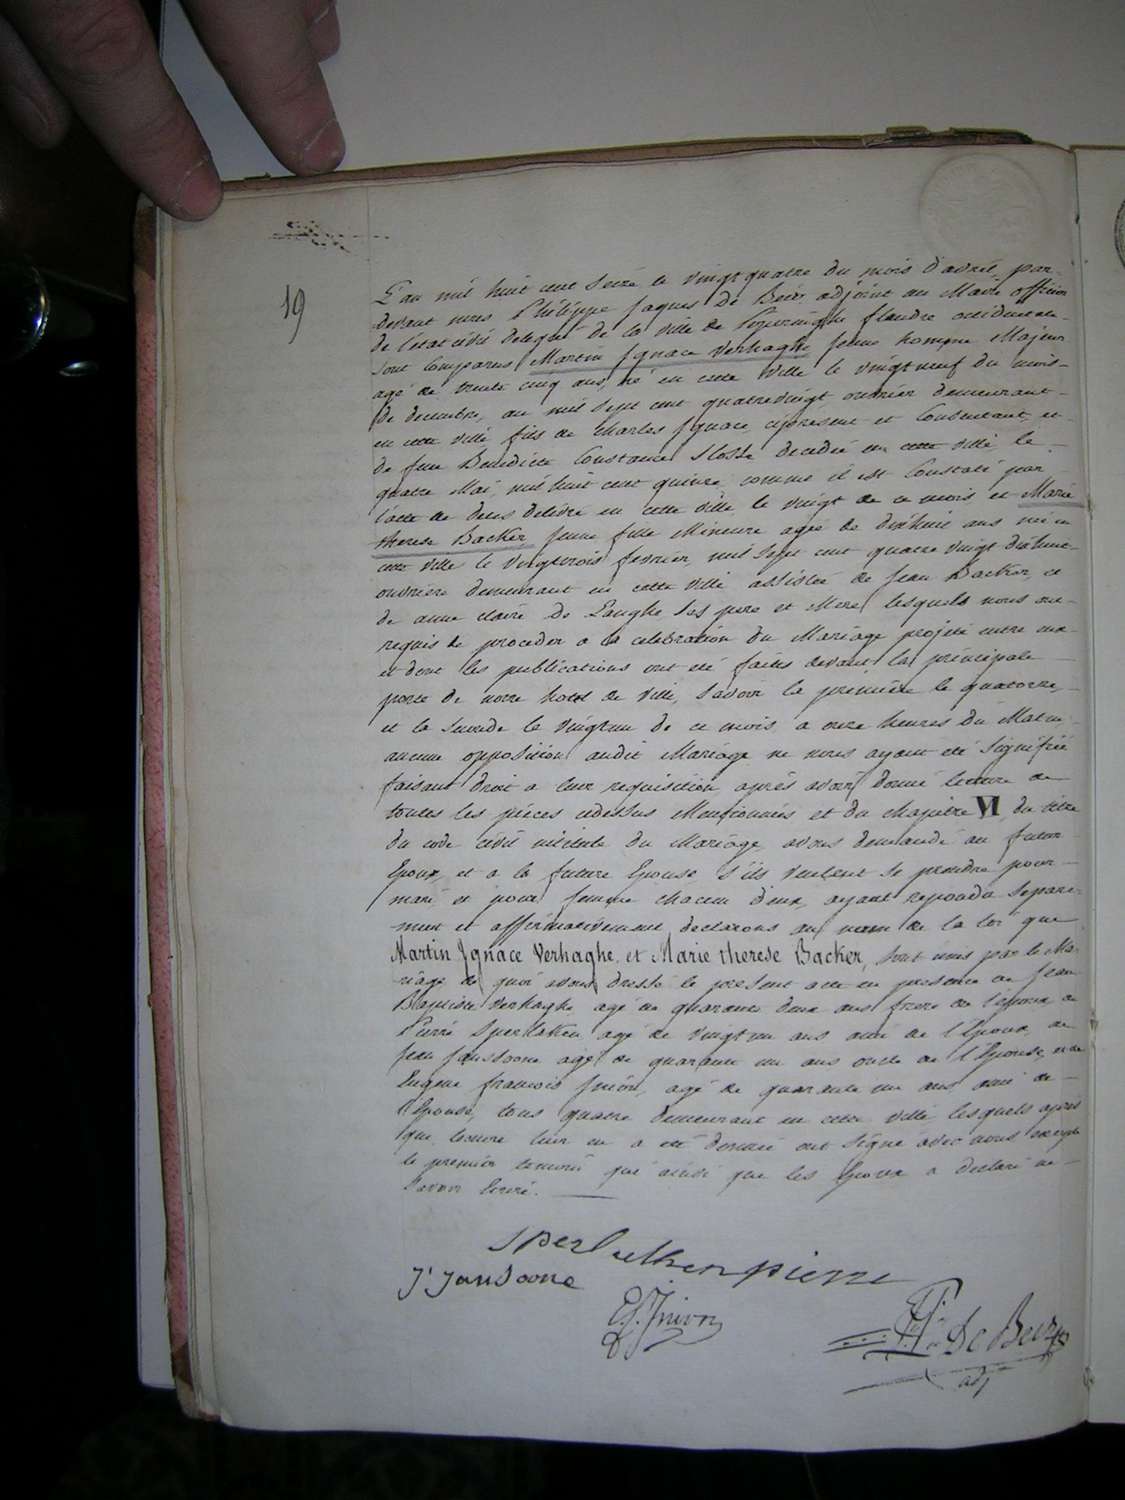 19
L'an mil huit cent seize le vingt quatre du mois d'avril, par
devant nous Philippe Jaques De Beir adjoint au Maire officier
de l'etat civil delegué de la ville de Poperinghe flandre occidentale
sont comparus Martin Ignace Verhaghe jeune homme Majeur
agé de trente cinq ans, né en cette ville le vingt neuf du mois
de decembre, an mil sept cent quatrevingt ouvrier demeurant
en cette ville fils de Charles Ignace, ciprésent et Consentant, et
de feue Benedicte Constance Slosse decedée en cette ville le
quatre Mai, mil huit cent quinze, comme il est Constaté par
l'acte de deces delivré en cette ville, le vingt de ce mois et Marie
therese Backer, jeune fille Mineure agée de dixhuit ans née en
cette ville le vingt trois fevrier, mil sept cent quatre vingt dixhuit
ouvriere demeurant en cette ville assistée de Jean Backer, et
de anne claire De Langhe ses pere et Mere lesquels nous ont
requis de proceder a la celebration du Mariage projeté entre eux
et dont les publications ont été faites devant la principale
porte de notre hotel de ville, savoir la première le quatorze,
et la seconde le vingt un de ce mois, a onze heures du Matin
aucune opposition audit Mariage ne nous ayant été signifiée
faisant droit a leur requisition, après avoir donné lecture de
toutes les pièces cidessus Mentionnées et du chapitre VI du titre
du code civil intitulé du Mariage, avons demandé au futur
Epoux, et a la future Epouse, s'ils veulent se prendre pour
mari et pour femme chacun d'eux, ayant repondu separe-
ment et affirmativement, declarons au nom de la loi que
Martin Ignace Verhaghe, et Marie therese Backer, sont unis par le Ma-
riage de quoi avons dressé le present acte en presence de Jean
Baptiste Verhaghe agé de quarante deux ans frere de l'epoux de
Pierre Sperlethen agé de vingt un ans ami de l'Epoux, de
Jean Jansoone agé de quarante un ans oncle de l'Epouse, et de
Eugene francois agé de quarante un ans ami de
l'Epouse, tous quatre demeurant en cette ville lesquels après
que lecture leur en a été donnée ont signé avec nous excepté
le premier temoin qui ainsi que les Epoux a declaré ne
savoir Ecrire.
pierre
J. Jansoone
De Beir
adj